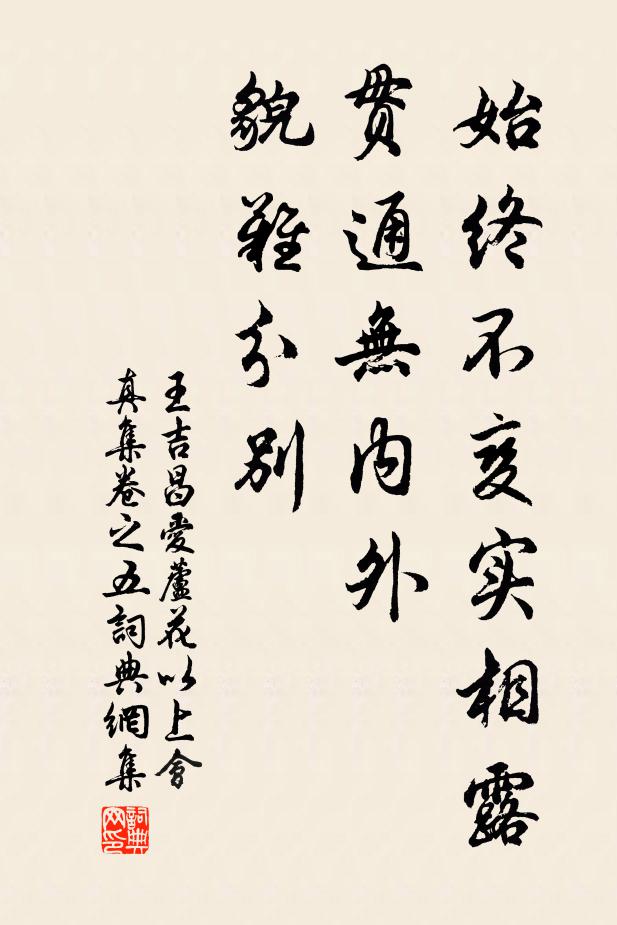 始终不变实相露
贯通無内外
貌难分别
王吉昌爱蘆花以上會
真集卷之五詞典網集
詞典
网印